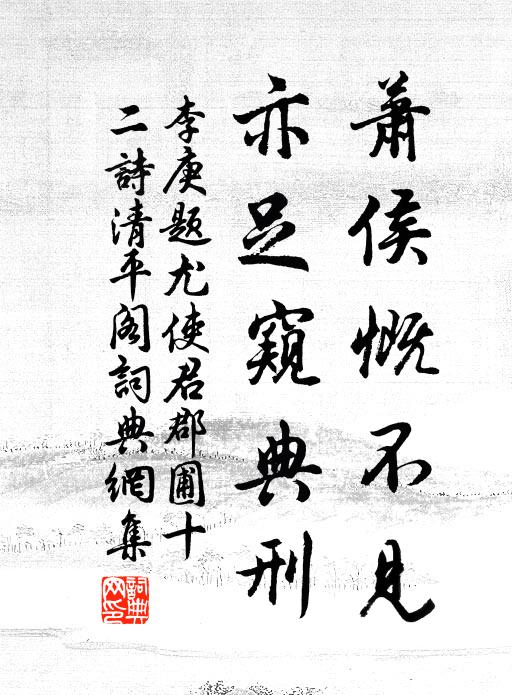 蕭侯慨不見
亦足窺典刑
李庚題尤使君郡圃十
二詩清平閣詞典網集
詞典
网印